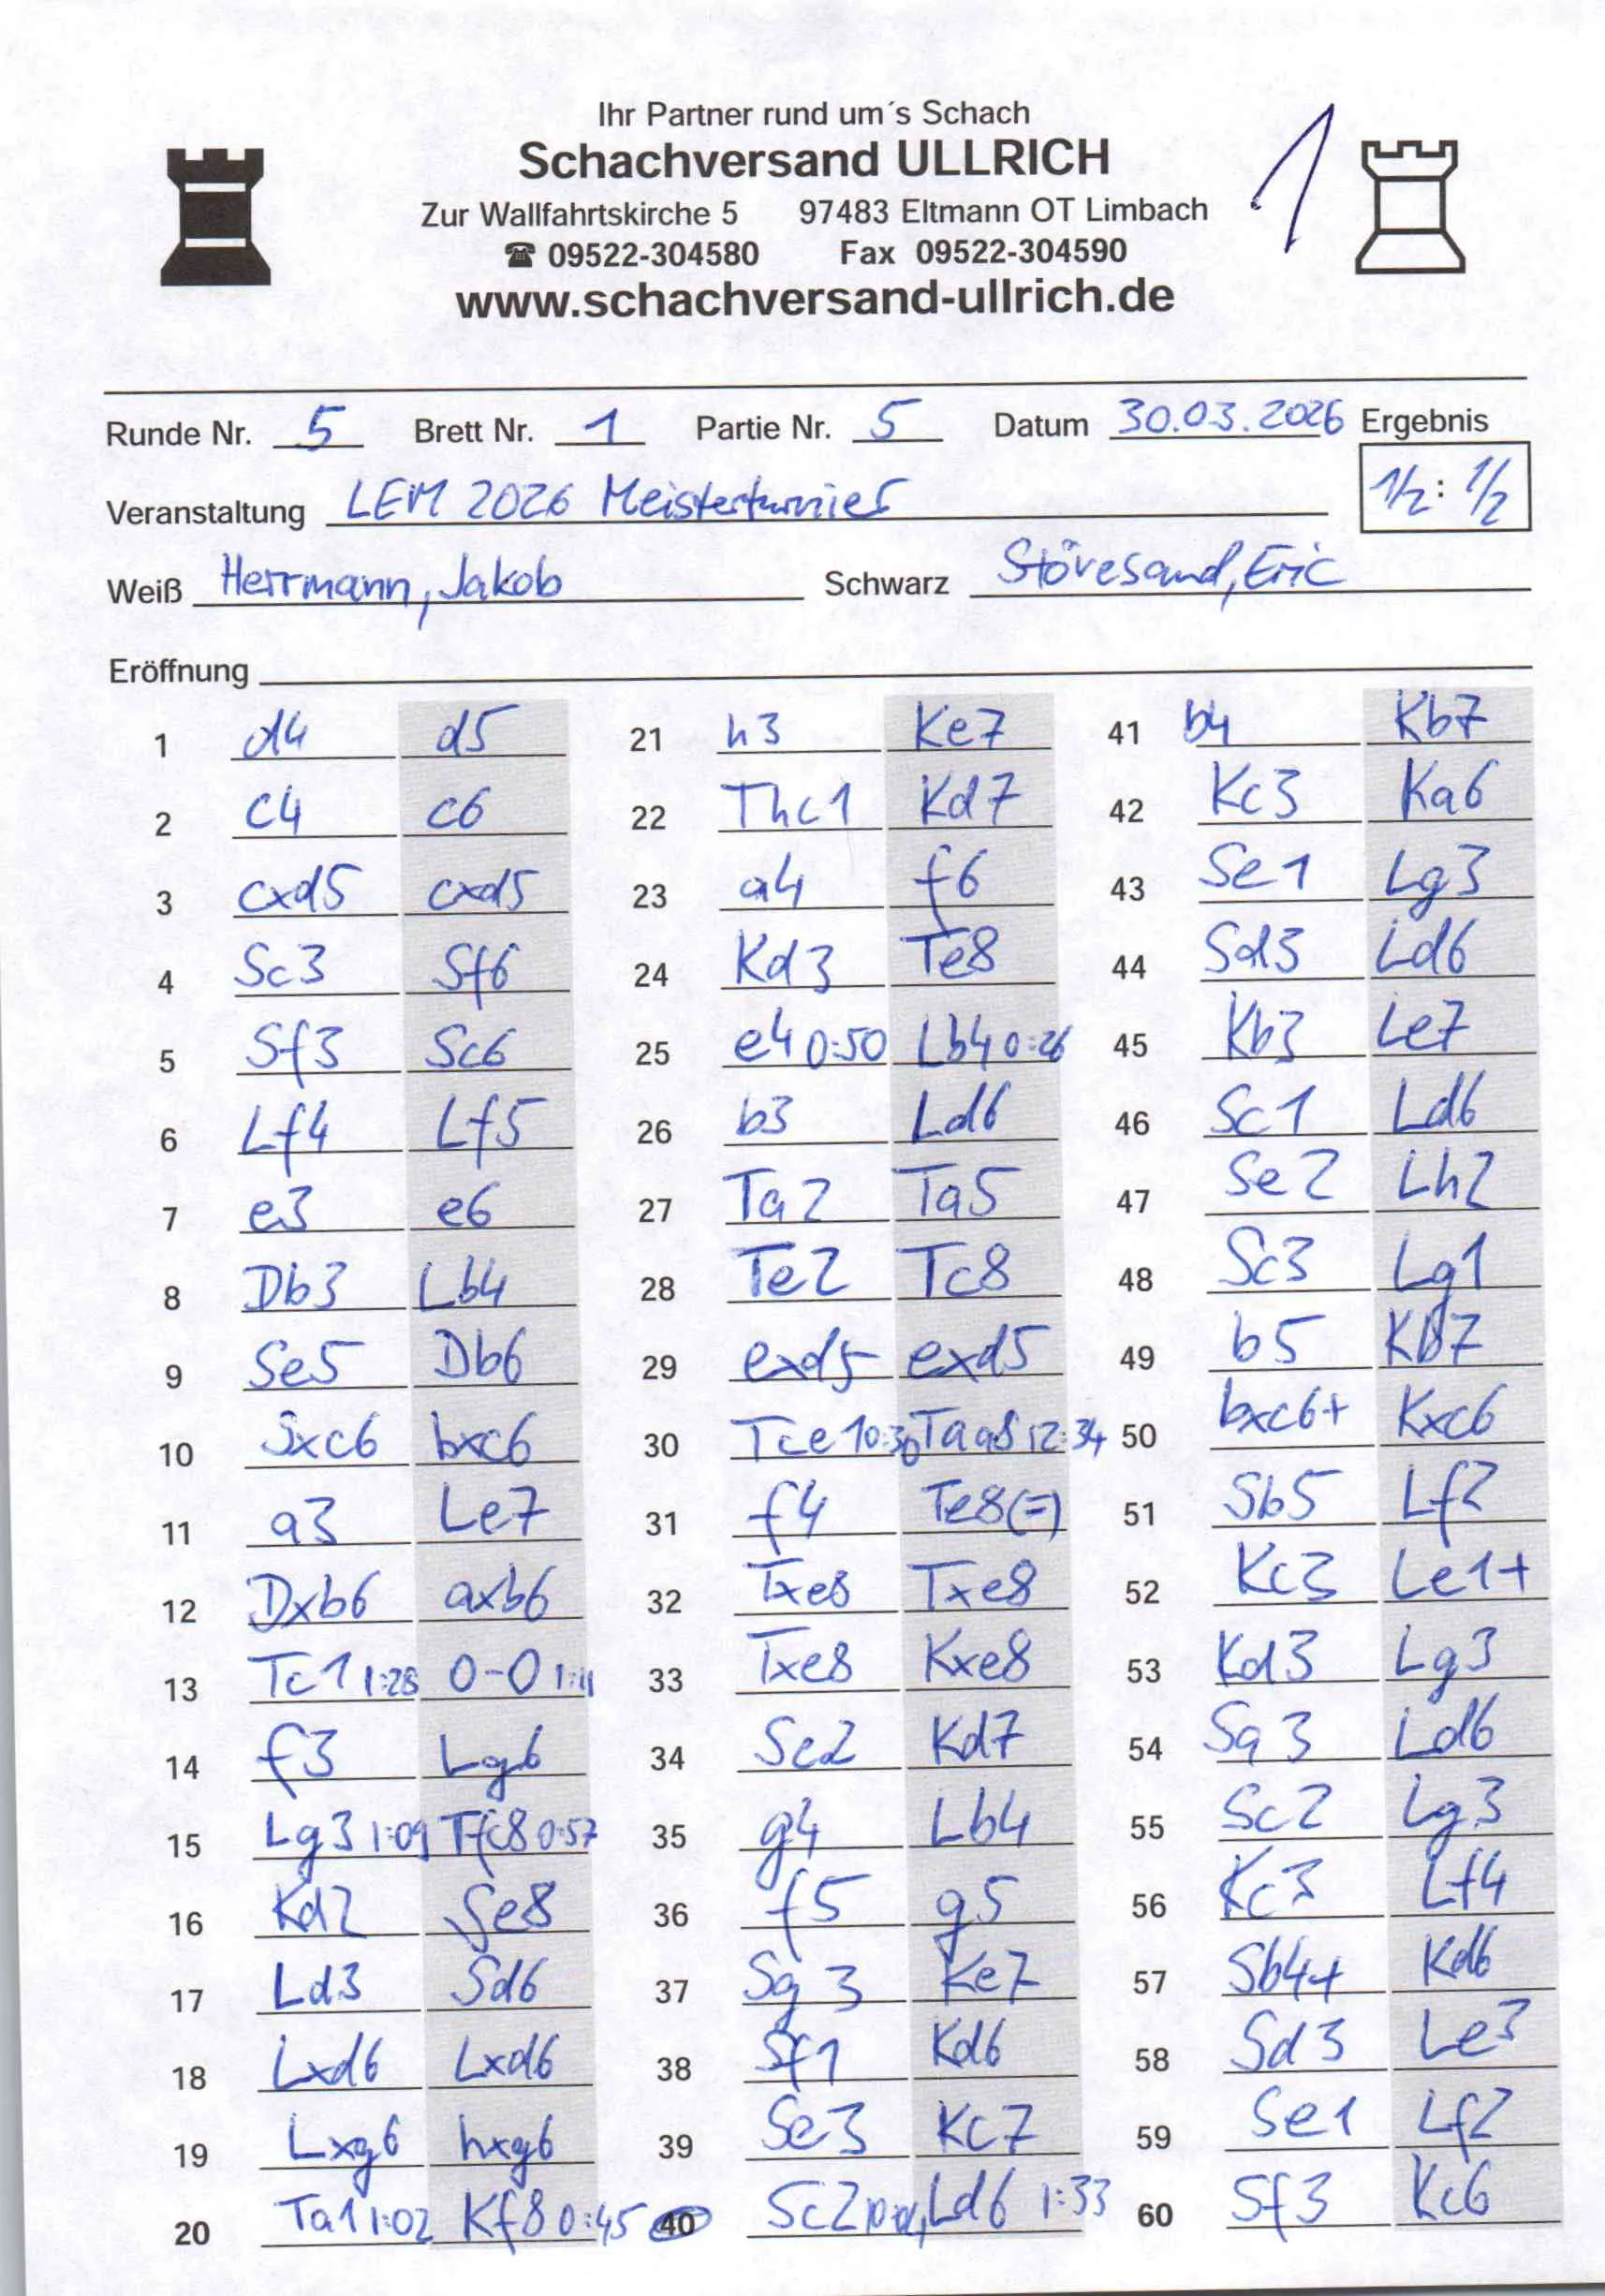 Ihr Partner rund um´s Schach
Schachversand ULLRICH
1
Zur Wallfahrtskirche 5 97483 Eltmann OT Limbach
☎ 09522-304580 Fax 09522-304590
www.schachversand-ullrich.de
Runde Nr. 5 Brett Nr. 1 Partie Nr. 5 Datum 30.03.2026 Ergebnis
1/2 : 1/2
Veranstaltung LEM 2026 Meisterturnier
Weiß Herrmann, Jakob Schwarz Stövesand, Eric
Eröffnung
1 d4 d5
2 c4 c6
3 cxd5 cxd5
4 Sc3 Sf6
5 Sf3 Sc6
6 Lf4 Lf5
7 e3 e6
8 Db3 Lb4
9 Se5 Db6
10 Sxc6 bxc6
11 a3 Le7
12 Dxb6 axb6
13 Tc1 1:28 0-0 1:11
14 f3 Lg6
15 Lg3 1:09 Tfc8 0:57
16 Kd2 Se8
17 Ld3 Sd6
18 Lxd6 Lxd6
19 Lxg6 hxg6
20 Ta1 1:02 Kf8 0:45
21 h3 Ke7
22 Thc1 Kd7
23 a4 f6
24 Kd3 Te8
25 e4 0:50 Lb4 0:26
26 b3 Ld6
27 Ta2 Ta5
28 Te2 Tc8
29 exd5 exd5
30 Tce1 0:30 Taa8 12:34
31 f4 Te8(=)
32 Txe8 Txe8
33 Txe8 Kxe8
34 Se2 Kd7
35 g4 Lb4
36 f5 g5
37 Sg3 Ke7
38 Sf1 Kd6
39 Se3 Kc7
40 Sc2 Ld6 1:33
41 b4 Kb7
42 Kc3 Ka6
43 Se1 Lg3
44 Sd3 Ld6
45 Kb3 Le7
46 Sc1 Ld6
47 Se2 Lh2
48 Sc3 Lg1
49 b5 Kb7
50 bxc6+ Kxc6
51 Sb5 Lf2
52 Kc3 Le1+
53 Kd3 Lg3
54 Sa3 Ld6
55 Sc2 Lg3
56 Kc3 Lf4
57 Sb4+ Kd6
58 Sd3 Le3
59 Se1 Lf2
60 Sf3 Kc6